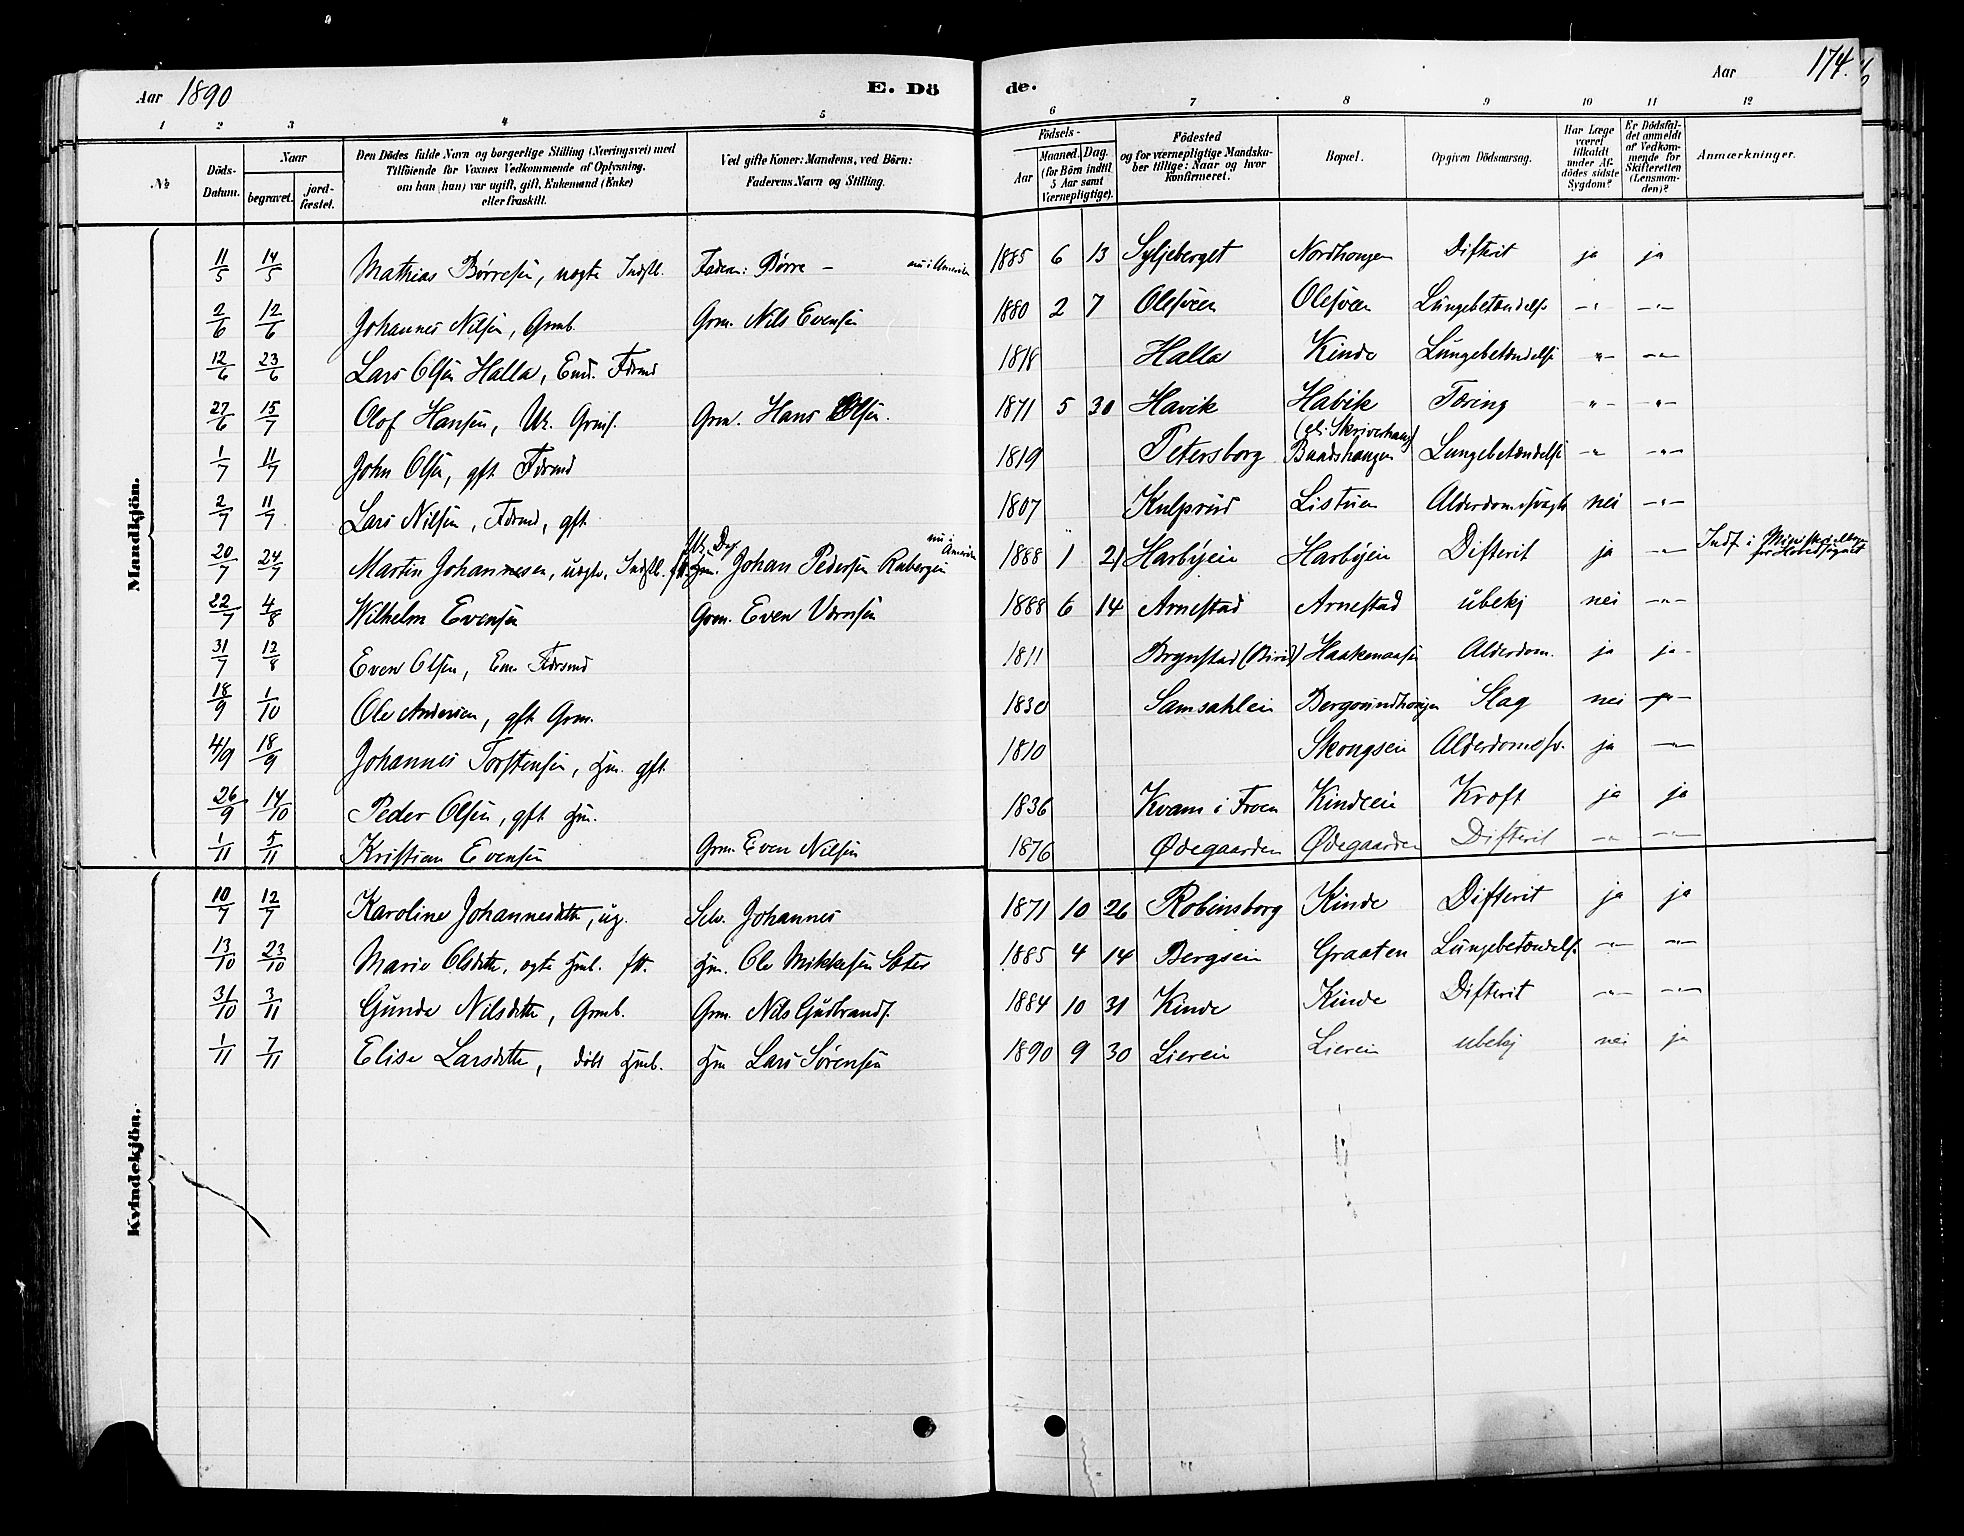 Aar 1890 E. Dö
de. Aar 174.
1 2 3 4 5 6 7 8 9 10 11 12
№
Döds-Datum.
Naar
begravet.
jord-fæstet.
Den Dödes fulde Navn og borgerlige Stilling (Næringsvei) med
Tilföiende for Voxnes Vedkommende af Oplysning,
om han (hun) var ugift, gift, Enkemand (Enke)
eller fraskilt.
Ved gifte Koner: Mandens, ved Börn:
Faderens Navn og Stilling.
Födsels-
Aar
Maaned. Dag.
(for Börn indtil
5 Aar samt
Værnepligtige).
Födested
og for værnepligtige Mandska-
ber tillige: Naar og hvor
Konfirmeret.
Bopæl.
Opgiven Dödsaarsag.
Har Læge
været
tilkaldt
under Af-
dödes sidste
Sygdom?
Er Dödsfal-
det anmeldt
af Vedkom-
mende for
Skifteretten
(Lensman-
den)?
Anmærkninger.
Mandkjön.
11/5 14/5 Mathias Börresen, uægte Indstl. Faderen: Börre – nu i Amerika 1885 6 13 Syljeberget Nordhougen Difterit ja ja
2/6 12/6 Johannes Nilsen, Grmb. Grm. Nils Evensen 1880 2 7 Olesveen Olesveen Lungebetændelse –"– –"–
12/6 23/6 Lars Olsen Halla, Enk. Fdrmd 1818 Halla Kinde Lungebetændelse –"– –"–
27/6 15/7 Olof Hansen, Grms. Grm. Hans Olsen. 1871 5 30 Havik Havik Tæring –"– –"–
1/7 11/7 John Olsen, gft. Fdrmd 1819 Petersborg Baadshaugen Lungebetændelse –"– –"–
2/7 11/7 Lars Nilsen, Fdrmd, gft. 1807 Kulsrud Listuen Alderdomssvagh. nei –"–
20/7 24/7 Martin Johannesen, uægte, Indstl. Johan Pedersen nu i Amerika 1888 1 21 Harbyein Harbyein Difterit ja –"–
22/7 4/8 Wilhelm Evensen Grm. Even 1888 6 14 Arnestad Arnestad ubekj nei –"–
31/7 12/8 Even Olsen, Em. Fdrmd 1811 Brynstad (Birid) Haakenaasen Alderdom. ja ja
18/9 1/10 Ole Andersen, gft. Grm. 1830 Samsahlein Bergsundhougen Slag nei –"–
4/9 18/9 Johannes Torstensen, Hm. gft. 1810 Skougsein Alderdomssv. ja –"–
26/9 14/10 Peder Olsen, gft. Hm. 1836 Kvam i Froen Kindeeie Kræft ja ja
1/11 5/11 Kristian Evensen Grm. Even Nilsen 1876 Ødegaarden Ødegaarden Difterit –"– –"–
Kvindekjön.
10/7 12/7 Karoline Johannesdtter, ug. Selv. Johannes 1871 10 26 Robinsborg Kinde Difterit ja ja
13/10 23/10 Marie Olsdtter, ægte Hmb. Hm. Ole Mikkelsen Sæter 1885 4 14 Bergsein Graaten Lungebetændelse –"– –"–
31/10 3/11 Gunde Nilsdtter, Grmb. Grm. Nils Gudbrands. 1884 10 31 Kinde Kinde Difterit –"– –"–
1/11 7/11 Elise Larsdtter, döbt Hmb. Hm Lars Sörensen 1890 9 30 Lierein Lierein ubekj nei ja